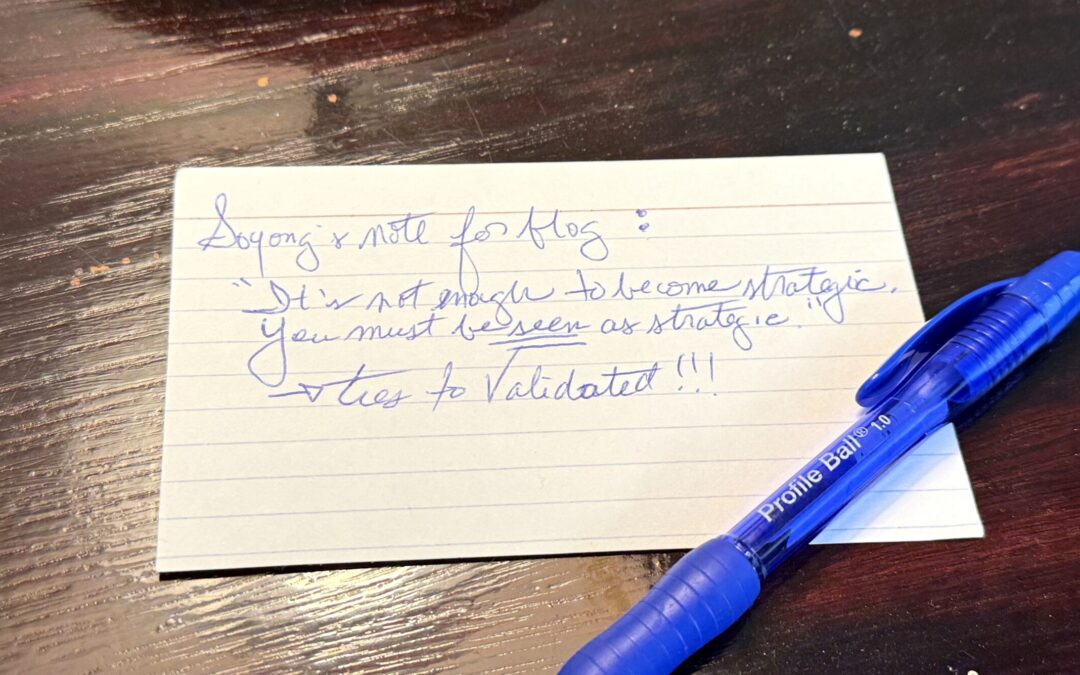 Soyong's note for blog :
"It's not enough to become strategic.
You must be seen as strategic."
→ ties to Validated!!!
Profile Ball® 1.0